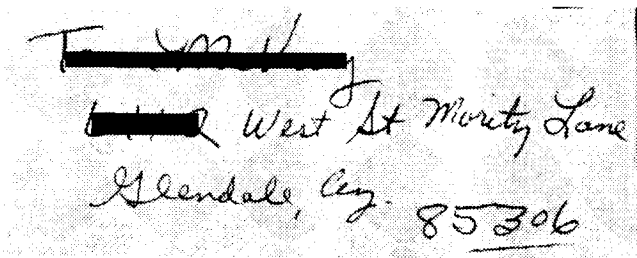 West St Moritz Lane
Glendale, Az.
85306